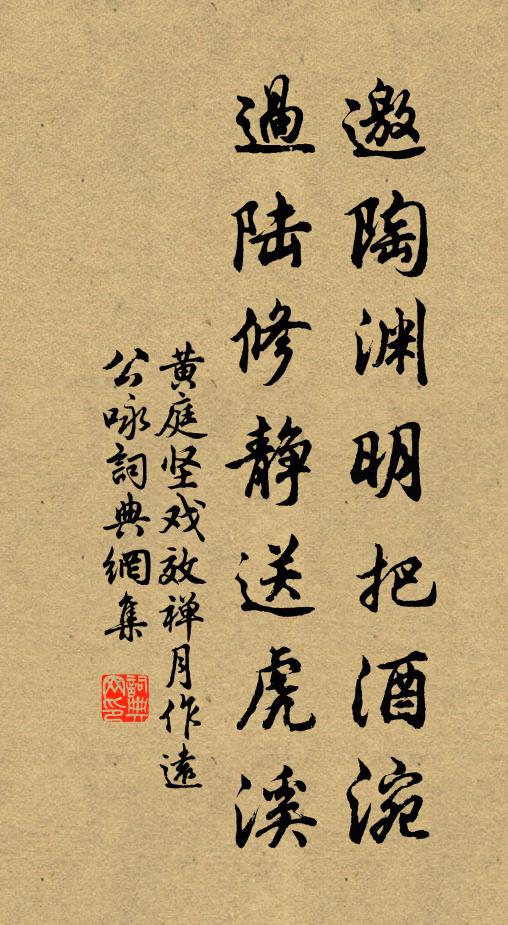 邀陶渊明把酒涴
過陆修静送虎溪
黄庭坚戏效禅月作遠
公咏詞典網集
詞典
网印